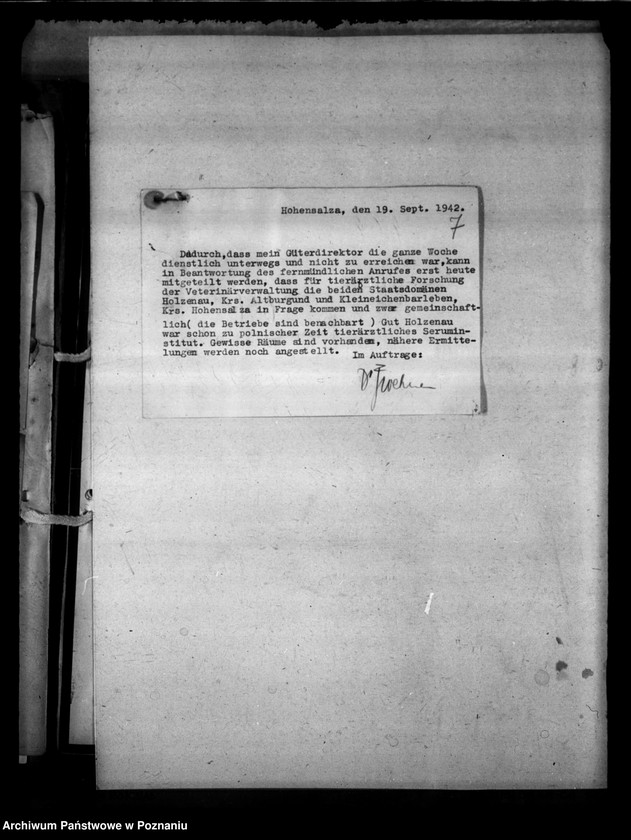 Hohensalza, den 19. Sept. 1942.
7
Dadurch,dass mein Güterdirektor die ganze Woche
dienstlich unterwegs und nicht zu erreichen war,kann
in Beantwortung des fernmündlichen Anrufes erst heute
mitgeteilt werden, dass für tierärztliche Forschung
der Veterinärverwaltung die beiden Staatsdomänen
Holzenau, Krs. Altburgund und Kleineichenbarleben,
Krs. Hohensalza in Frage kommen und zwar gemeinschaft-
lich( die Betriebe sind benachbart ) Gut Holzenau
war schon zu polnischer Zeit tierärztliches Serumin-
stitut. Gewisse Räume sind vorhanden, nähere Ermitte-
lungen werden noch angestellt.
Im Auftrage:
Dr
Archiwum Państwowe w Poznaniu